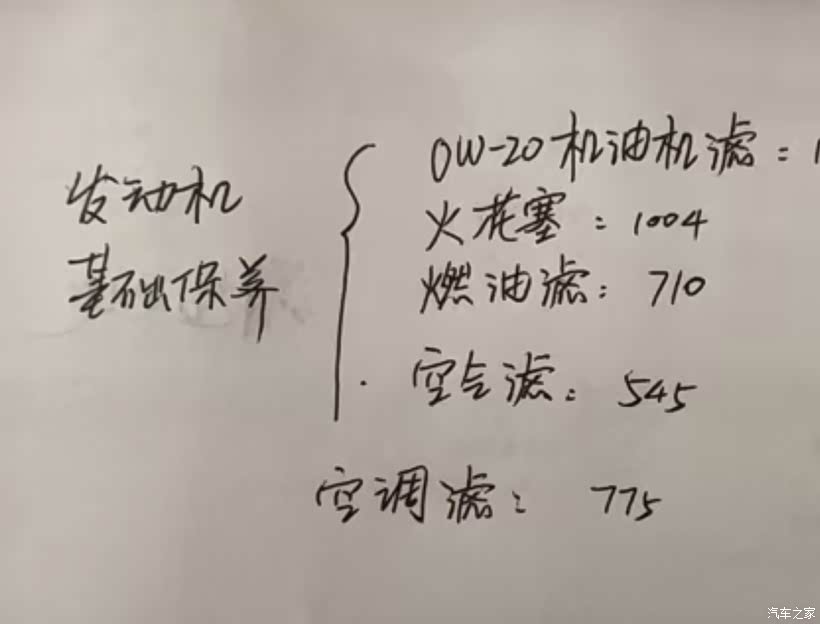 发动机
基础保养
0W-20机油机滤：1
火花塞：1004
燃油滤：710
空气滤：545
空调滤：775
汽车之家